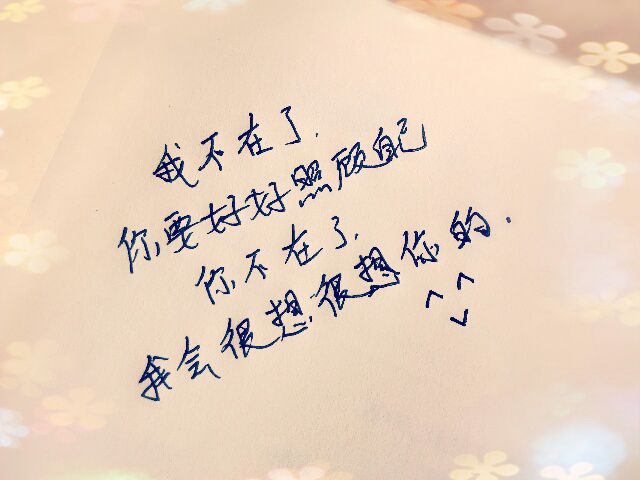 我不在了.
你要好好照顾自己
你不在了.
我会很想很想你的.
^^